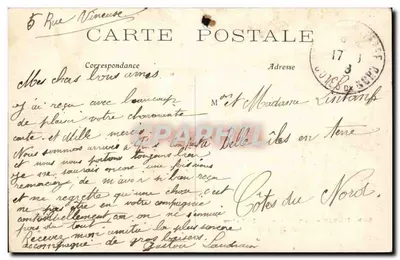 5 Rue Vineuse
CARTE POSTALE
Correspondance
Adresse
Mes chers bons amis
j'ai reçu avec beaucoup
de plaisir votre charmante
carte et Mille merci
Nous sommes arrivés à
et nous nous portons toujours bien
je ne saurais encore une fois vous
remercier de m'avoir si bien reçu
et ne regrette qu'une chose c'est
ne pas être en votre compagnie
continuellement car on ne s'ennuie
pas du tout
Recevez mon amitié la plus sincère
accompagnée de gros baisers
Gaston
M on et Madame
Belle-isle en terre
Côtes du Nord
17
CÔTES DU NORD